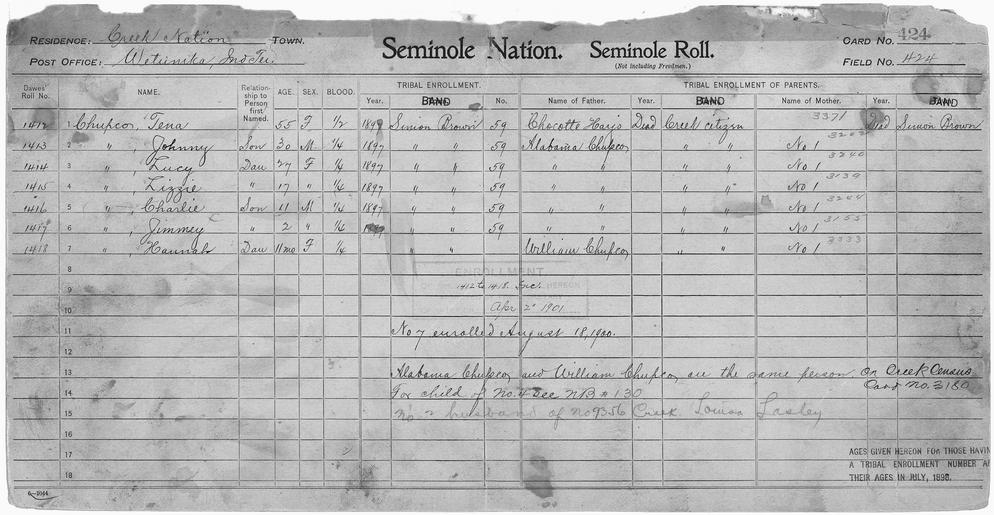 RESIDENCE: Creek Nation TOWN. Seminole Nation. Seminole Roll. CARD NO. 424
POST OFFICE: Wetumka, Ind Ter. (Not including Freedmen.) FIELD NO. 424
Dawes' Roll No. NAME. Relationship to Person first Named. AGE. SEX. BLOOD. TRIBAL ENROLLMENT. TRIBAL ENROLLMENT OF PARENTS.
Year. BAND No. Name of Father. Year. BAND Name of Mother. Year. BAND
3371
1412 1 Chupco, Tena 55 F 1/2 1897 Simon Brown 59 Chocotte Harjo Dead Creek citizen Dead Simon Brown
1413 2 " , Johnny Son 30 M 1/4 1897 " " 59 Alabama Chupco " " No 1
3240
1414 3 " , Lucy Dau 27 F 1/4 1897 " " 59 " " " No 1
3139
1415 4 " , Lizzie " 17 " 1/4 1897 " " 59 " " " No 1
1416 5 " , Charlie Son 11 M 1/4 1897 " " 59 " " " No 1
3155
1417 6 " , Jimmey " 2 " 1/4 " " 59 " " " No 1
3333
1418 7 " , Hannah Dau 11mo F 1/4 " " William Chupco " " No 1
8
ENROLLMENT
9 1412 to 1418. Inc. HEREON
10 Apr 2" 1901
11 No 7 enrolled August 18, 1900.
12
13 Alabama Chupco, and William Chupco are the same person, on Creek Census Card No. 3150
14 For child of No. 4 see NB # 130
15 No. 2 husband of no 9356 Creek. Louisa Lasley
16
17
18
AGES GIVEN HEREON FOR THOSE HAVIN
A TRIBAL ENROLLMENT NUMBER A
THEIR AGES IN JULY, 1898.
6-1044